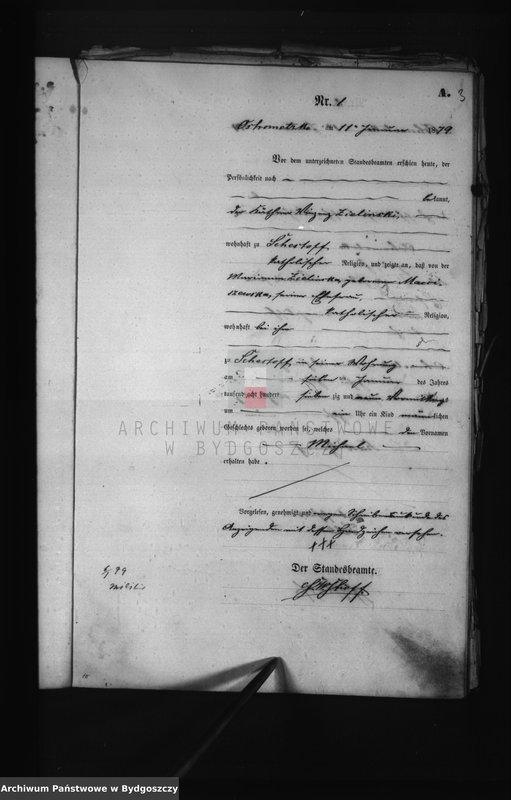 A. 3
Nr. 1
Ostrometzko am 11ten Januar 1879
Vor dem unterzeichneten Standesbeamten erschien heute, der
Persönlichkeit nach
bekannt,
der Käthner Vinzenz Zielinski,
wohnhaft zu
katholischer Religion, und zeigte an, daß von der
Marianna Zielinska geborene
seiner Ehefrau,
katholischer Religion,
wohnhaft bei ihm
zu in seiner Wohnung
am sieben Januar des Jahres
tausend acht hundert sieben zig und neun Vormittags
um ein Uhr ein Kind männlichen
Geschlechts geboren worden sei, welches den Vornamen
Michael
erhalten habe.
ARCHIWUM PAŃSTWOWE
W BYDGOSZCZY
Vorgelesen, genehmigt und wegen Schreibensunkunde des
Anzeigenden mit dessen Handzeichen versehen.
+++
Der Standesbeamte.
Archiwum Państwowe w Bydgoszczy